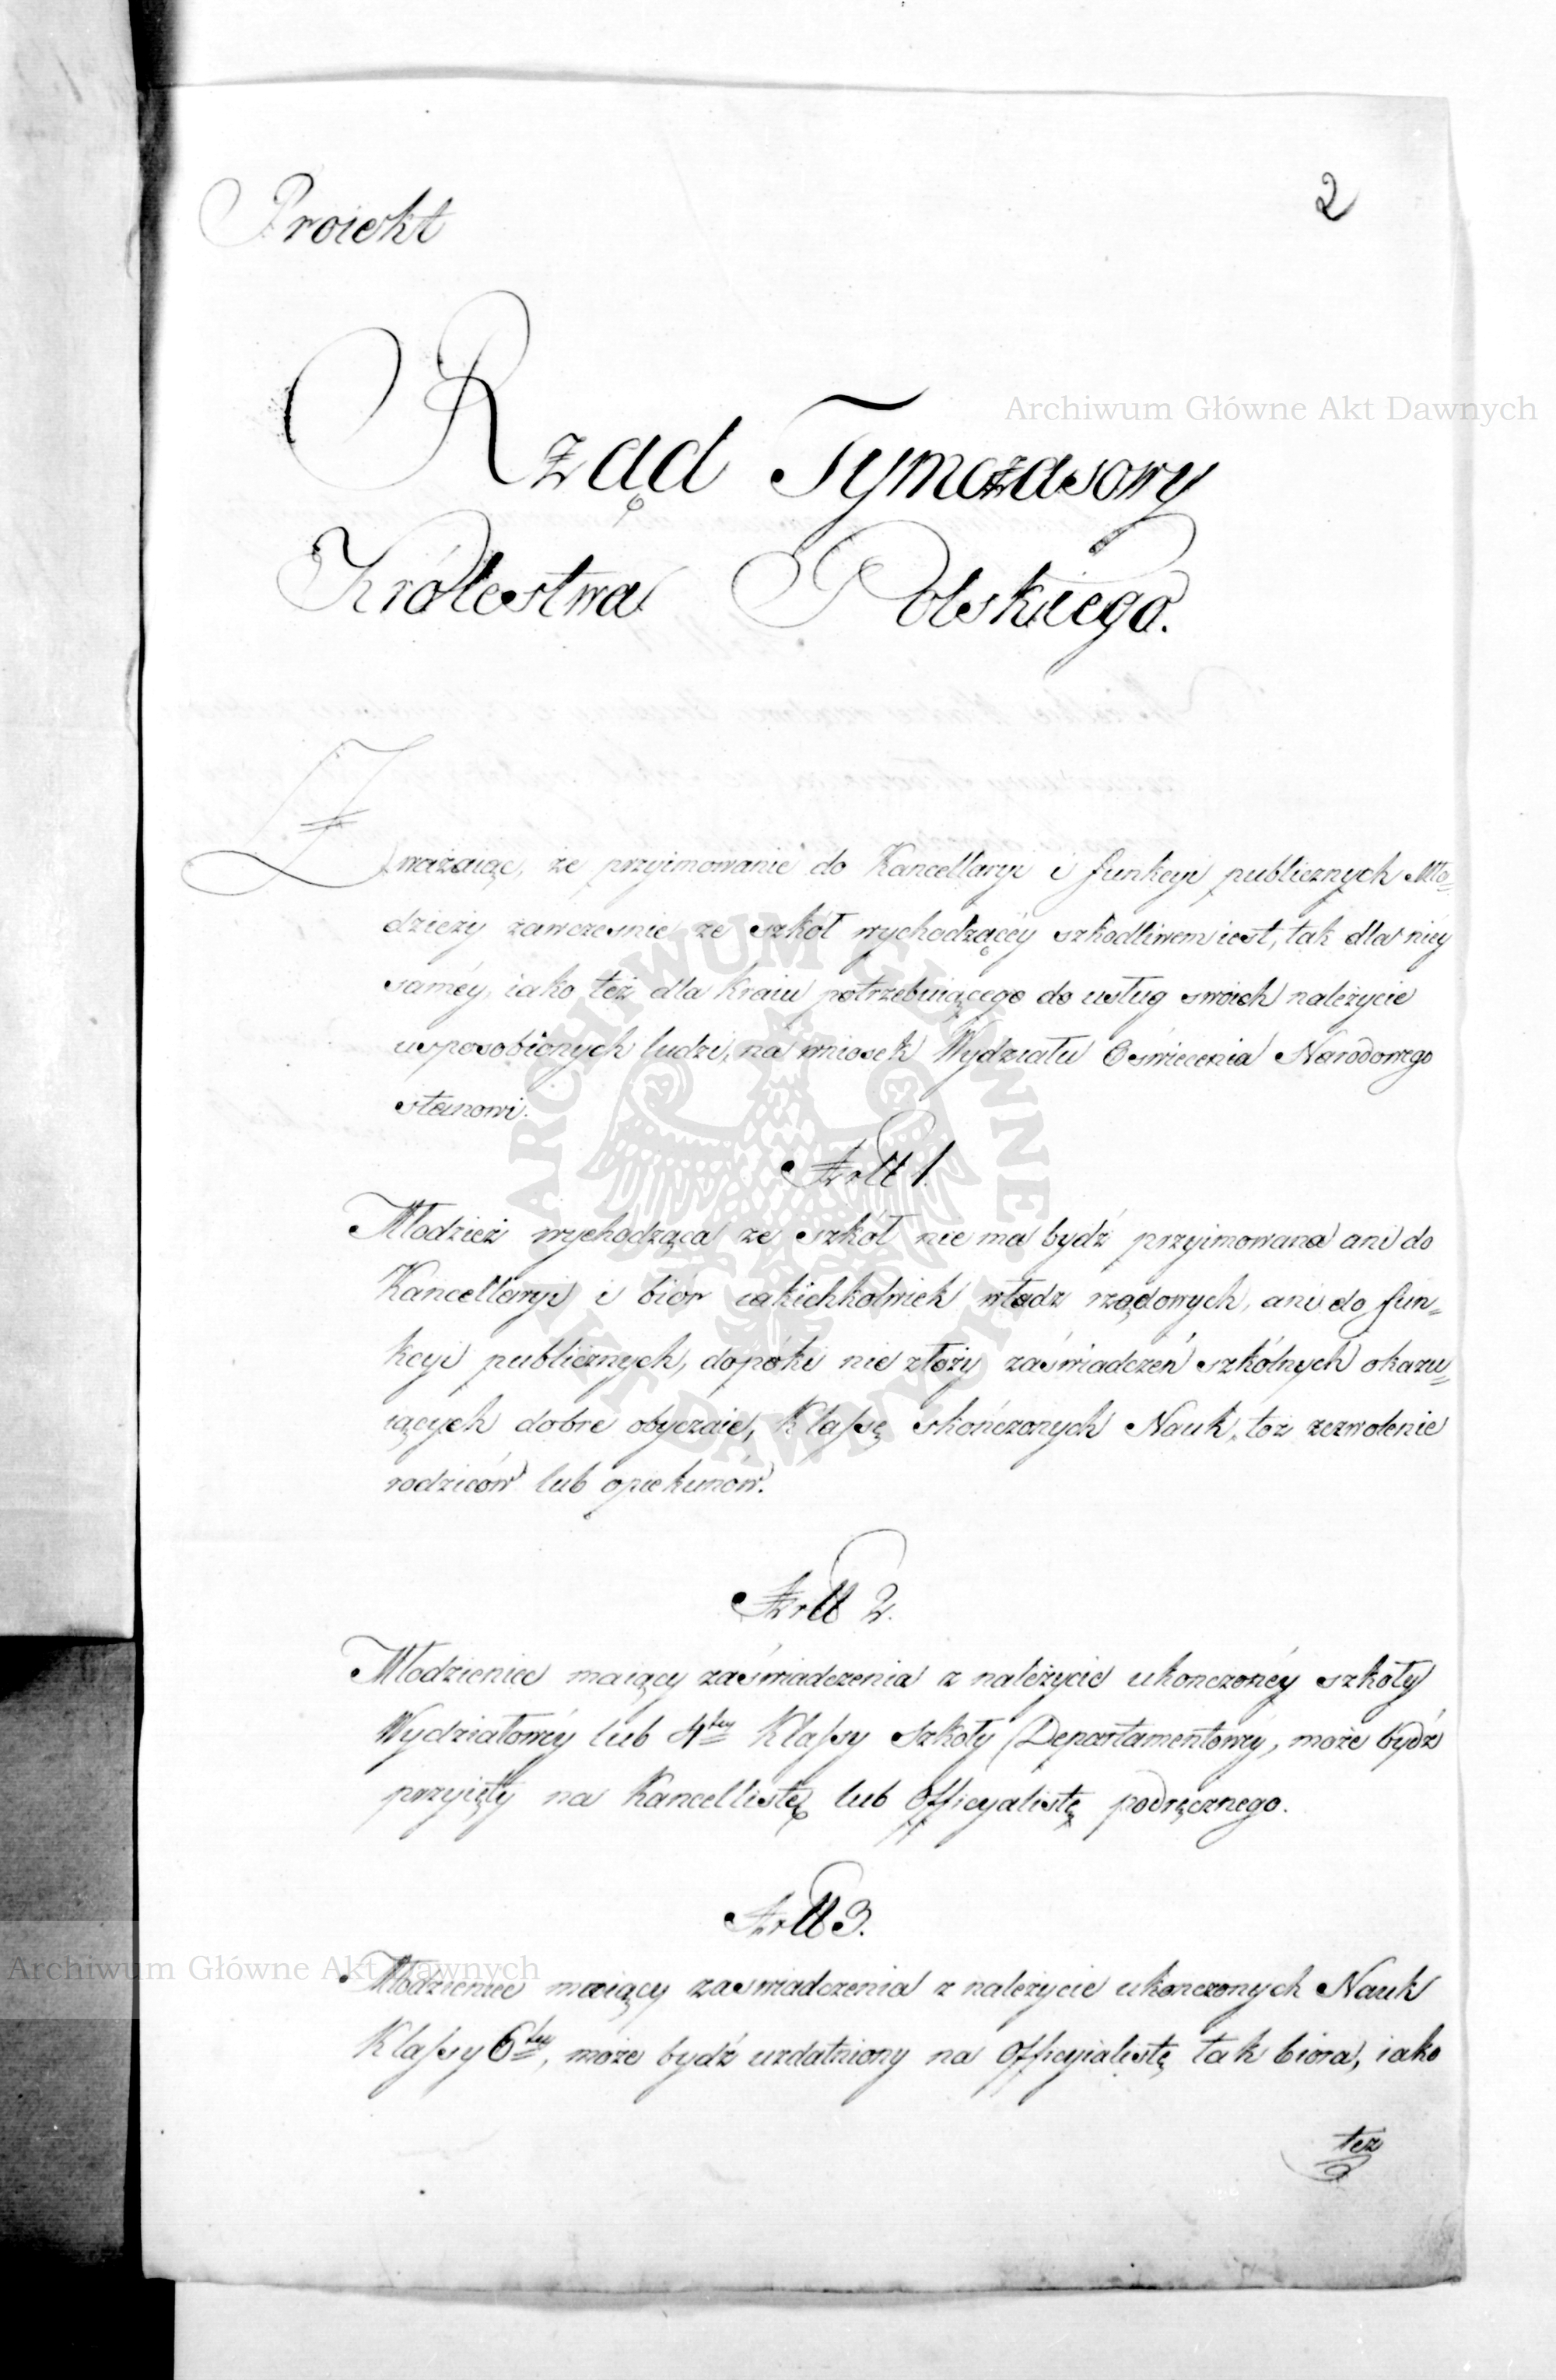 Proiekt
2
Rząd Tymczasowy
Królestwa Polskiego.
Archiwum Główne Akt Dawnych
Zważaiąc, że przyimowanie do Kancellaryi i funkcyi publicznych Mło=
dzieży zawczesnie ze szkół wychodzącéy szkodliwem iest, tak dla niéy
saméy, iako też dla kraiu potrzebuiącego do usług swoich należycie
usposobionych ludzi, na wniosek Wydziału Oświecenia Narodowego
stanowi.
Artt 1.
Młodzież wychodząca ze szkół nie ma bydź przyimowana ani do
Kancellaryi i biór iakichkolwiek władz rządowych, ani do fun=
kcyi publicznych, dopóki nie złoży zaświadczeń szkólnych okazu=
iących dobre obyczaie, Klassę skończonych Nauk, toż zezwolenie
rodziców lub opiekunów.
ARCHIWUM GŁÓWNE AKT DAWNYCH
Artt 2.
Młodzieniec maiący zaświadczenia z należycie ukonczonéy szkoły
Wydziałowéy lub 4tey Klassy Szkoły Departamentowéy, może bydź
przyięty na Kancellistę lub Officyalistę podręcznego.
Artt 3.
Archiwum Główne Akt Dawnych
Młodzieniec maiący zaswiadczenia z należycie ukonczonych Nauk
Klassy 6tey, może bydź uzdatniony na Officyialistę tak bióra, iako
też